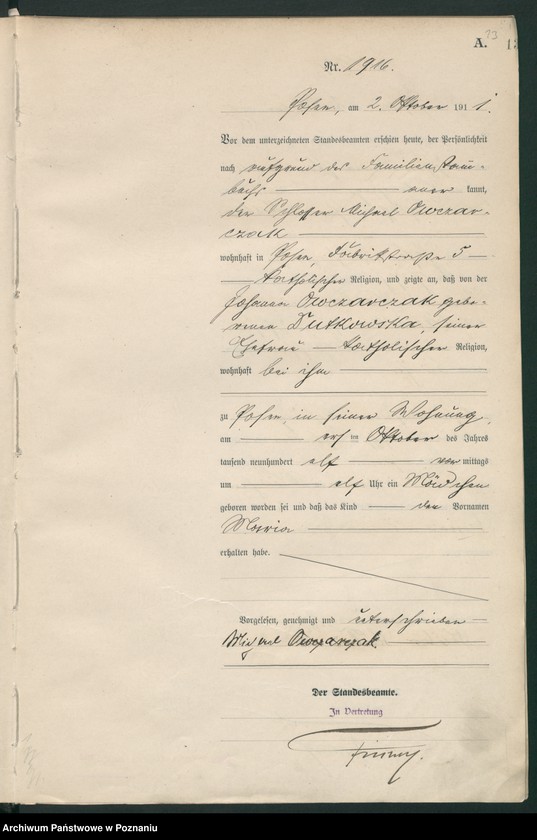 A. 13
Nr. 1916.
Posen, am 2. Oktober 1911.
Vor dem unterzeichneten Standesbeamten erschien heute, der Persönlichkeit
nach aufgrund des Familienstam-
buchs aner kannt,
der Schlosser Michael Owczar-
czak
wohnhaft in Posen, Fabrikstraße 5
katholischer Religion, und zeigte an, daß von der
Johanna Owczarczak gebo-
renen Dutkowska, seiner
Ehefrau katholischer Religion,
wohnhaft bei ihm
zu Posen, in seiner Wohnung,
am ersten Oktober des Jahres
tausend neunhundert elf vor mittags
um elf Uhr ein Mädchen
geboren worden sei und daß das Kind den Vornamen
Maria
erhalten habe.
Vorgelesen, genehmigt und unterschrieben
Michael Owczarczak.
Der Standesbeamte.
In Vertretung
Archiwum Państwowe w Poznaniu